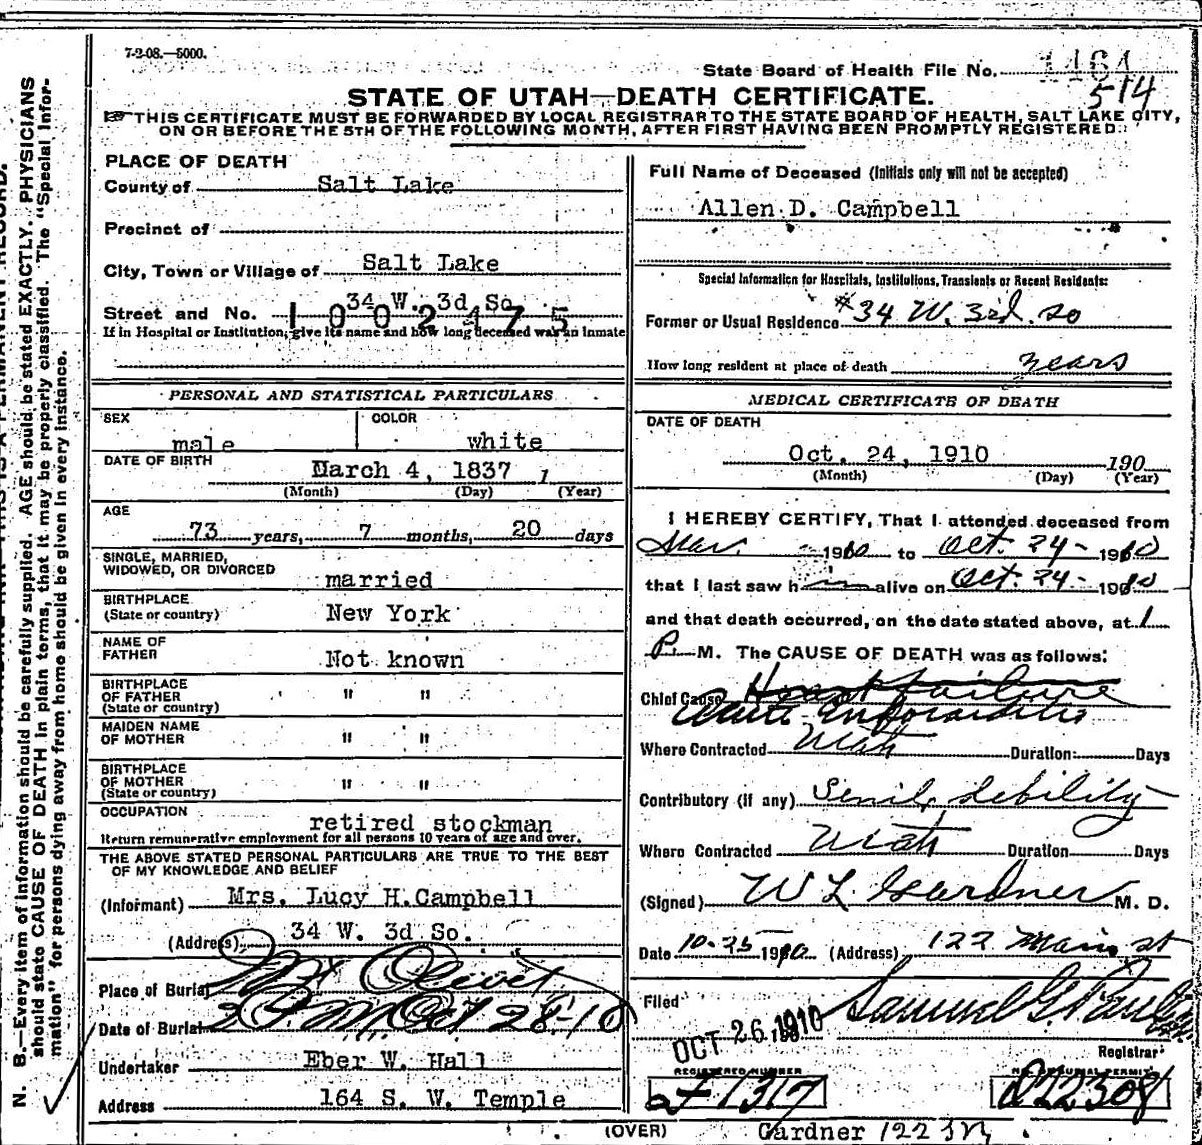 7-2-08.—5000.
State Board of Health File No. 1164
514
STATE OF UTAH—DEATH CERTIFICATE.
THIS CERTIFICATE MUST BE FORWARDED BY LOCAL REGISTRAR TO THE STATE BOARD OF HEALTH, SALT LAKE CITY,
ON OR BEFORE THE 5TH OF THE FOLLOWING MONTH, AFTER FIRST HAVING BEEN PROMPTLY REGISTERED.
PLACE OF DEATH
County of Salt Lake
Precinct of
City, Town or Village of Salt Lake
Street and No. 34 W. 3d So.
1002475
If in Hospital or Institution, give its name and how long deceased was an inmate
PERSONAL AND STATISTICAL PARTICULARS
SEX male COLOR white
DATE OF BIRTH March 4, 1837 1
(Month) (Day) (Year)
AGE 73 years, 7 months, 20 days
SINGLE, MARRIED,
WIDOWED, OR DIVORCED married
BIRTHPLACE
(State or country) New York
NAME OF
FATHER Not known
BIRTHPLACE
OF FATHER " "
(State or country)
MAIDEN NAME
OF MOTHER " "
BIRTHPLACE
OF MOTHER " "
(State or country)
OCCUPATION retired stockman
Return remunerative employment for all persons 10 years of age and over.
THE ABOVE STATED PERSONAL PARTICULARS ARE TRUE TO THE BEST
OF MY KNOWLEDGE AND BELIEF
(Informant) Mrs. Lucy H. Campbell
(Address) 34 W. 3d So.
Place of Burial Mt Olivet
Date of Burial 2 P.M. Oct 28-10
Undertaker Eber W. Hall
Address 164 S. W. Temple
Full Name of Deceased (Initials only will not be accepted)
Allen D. Campbell
Special Information for Hospitals, Institutions, Transients or Recent Residents:
Former or Usual Residence #34 W. 3rd. So
How long resident at place of death years
MEDICAL CERTIFICATE OF DEATH
DATE OF DEATH
Oct. 24, 1910 190
(Month) (Day) (Year)
I HEREBY CERTIFY, That I attended deceased from
Mar. 1910 to Oct. 24- 1910
that I last saw him alive on Oct. 24- 1910
and that death occurred, on the date stated above, at 1
P. M. The CAUSE OF DEATH was as follows:
Chief Cause Heart failure
Acute Endocarditis
Where Contracted Utah Duration Days
Contributory (if any) Senile debility
Where Contracted Utah Duration Days
(Signed) W L Gardner M. D.
Date 10-25 1910 (Address) 122 Main st
Filed OCT 26 1910 Samuel G. Paul
Registrar
REGISTERED NUMBER
1317
No. BURIAL PERMIT
22308
(OVER) Gardner 122
N. B.—Every item of information should be carefully supplied. AGE should be stated EXACTLY. PHYSICIANS
should state CAUSE OF DEATH in plain terms, that it may be properly classified. The "Special Infor-
mation" for persons dying away from home should be given in every instance.